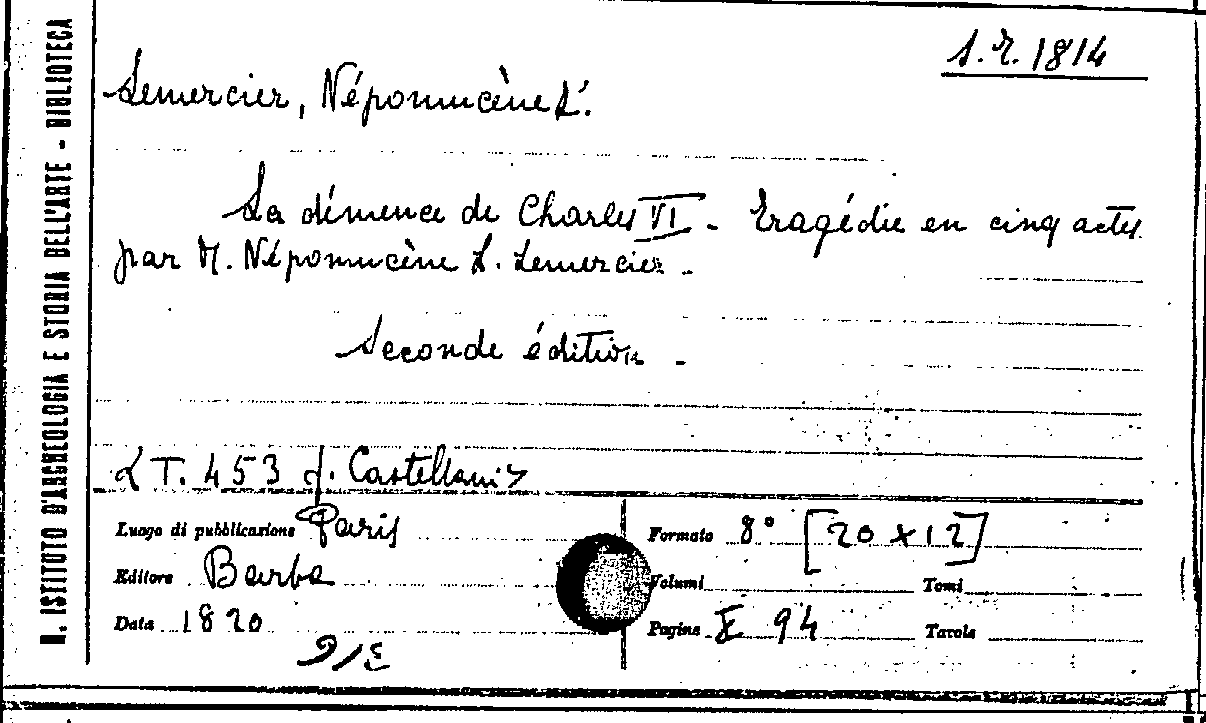 R. ISTITUTO D'ARCHEOLOGIA E STORIA DELL'ARTE - BIBLIOTECA
S.R. 1814
Lemercier, Népomucène L.
La démence de Charles VI - Tragédie en cinq actes
par M. Népomucène L. Lemercier -
Seconde édition -
T. 453 f. Castellani
Luogo di pubblicazione Paris
Editore Barba
Data 1820
Formato 8° [20 x 12]
Volumi Tomi
Pagine 94 Tavole